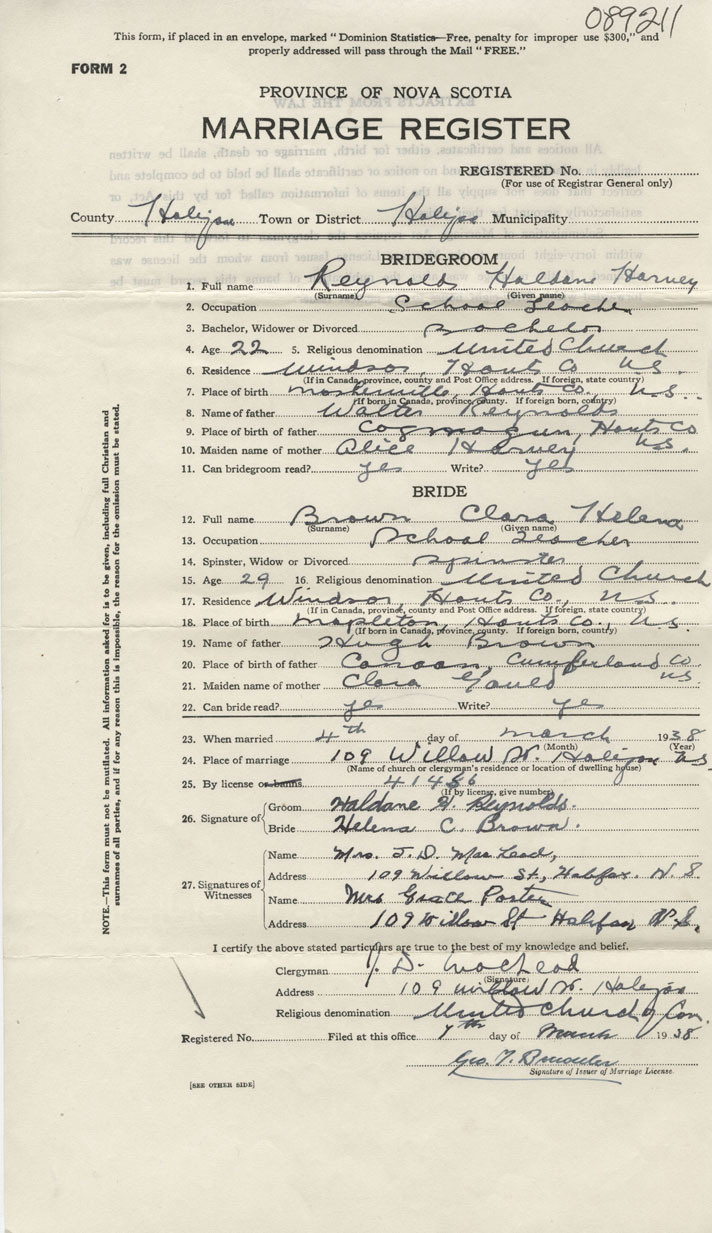 089211
This form, if placed in an envelope, marked "Dominion Statistics—Free, penalty for improper use $300," and
properly addressed will pass through the Mail "FREE."
FORM 2
PROVINCE OF NOVA SCOTIA
MARRIAGE REGISTER
REGISTERED No.
(For use of Registrar General only)
County Halifax Town or District Halifax Municipality
BRIDEGROOM
1. Full name Reynolds Haldane Harvey
(Surname) (Given name)
2. Occupation School Teacher
3. Bachelor, Widower or Divorced Bachelor
4. Age 22 5. Religious denomination United Church
6. Residence Windsor, Hants Co N.S.
(If in Canada, province, county and Post Office address. If foreign, state country)
7. Place of birth Hants Co. N.S.
(If born in Canada, province, county. If foreign born, country)
8. Name of father Walter Reynolds
9. Place of birth of father Cogmagun, Hants Co
10. Maiden name of mother Alice Harvey N.S.
11. Can bridegroom read? yes Write? yes
BRIDE
12. Full name Brown Clara Helena
(Surname) (Given name)
13. Occupation School Teacher
14. Spinster, Widow or Divorced Spinster
15. Age 29 16. Religious denomination United Church
17. Residence Windsor, Hants Co., N.S.
(If in Canada, province, county and Post Office address. If foreign, state country)
18. Place of birth Mapleton, Hants Co., N.S.
(If born in Canada, province, county. If foreign born, country)
19. Name of father Hugh Brown
20. Place of birth of father Canaan, Cumberland Co
21. Maiden name of mother Clara Gould N.S.
22. Can bride read? yes Write? yes
23. When married 4th day of March 1938
(Month) (Year)
24. Place of marriage 109 Willow St. Halifax N.S.
(Name of church or clergyman's residence or location of dwelling house)
25. By license or banns 41456
(If by license, give number)
26. Signature of
Groom Haldane H. Reynolds.
Bride Helena C. Brown.
27. Signatures of Witnesses
Name Mrs. J. D. MacLeod,
Address 109 Willow St., Halifax. N.S.
Name Mrs Grace Porter
Address 109 Willow St Halifax N.S.
I certify the above stated particulars are true to the best of my knowledge and belief.
Clergyman J. D. MacLeod
(Signature)
Address 109 Willow St. Halifax
Religious denomination United Church of Can.
Registered No. Filed at this office 7th day of March 1938
Geo. T.
Signature of Issuer of Marriage License.
[SEE OTHER SIDE]
NOTE.—This form must not be mutilated. All information asked for is to be given, including full Christian and
surnames of all parties, and if for any reason this is impossible, the reason for the omission must be stated.